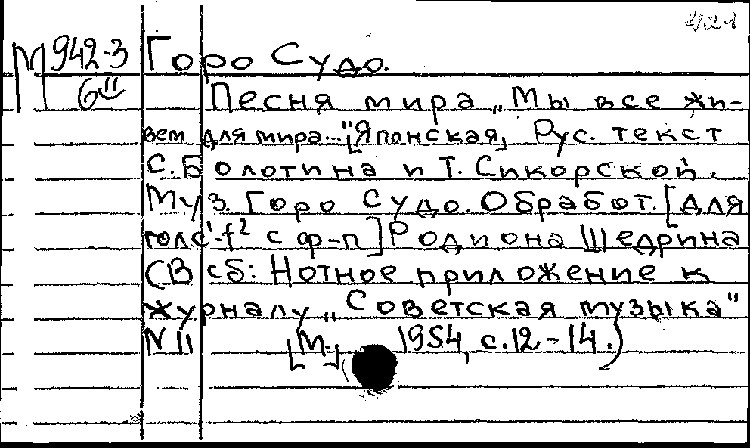 М 942-3 Горо Судо.
6II Песня мира „Мы все жи-
вем для мира..." [Японская] Рус. текст
С. Болотина и Т. Сикорской.
Муз. Горо Судо. Обработ. [для
голс'-f² с ф-п] Родиона Щедрина
(В сб: Нотное приложение к
журналу „Советская музыка"
N 11 [М.] 1954, с. 12-14.)